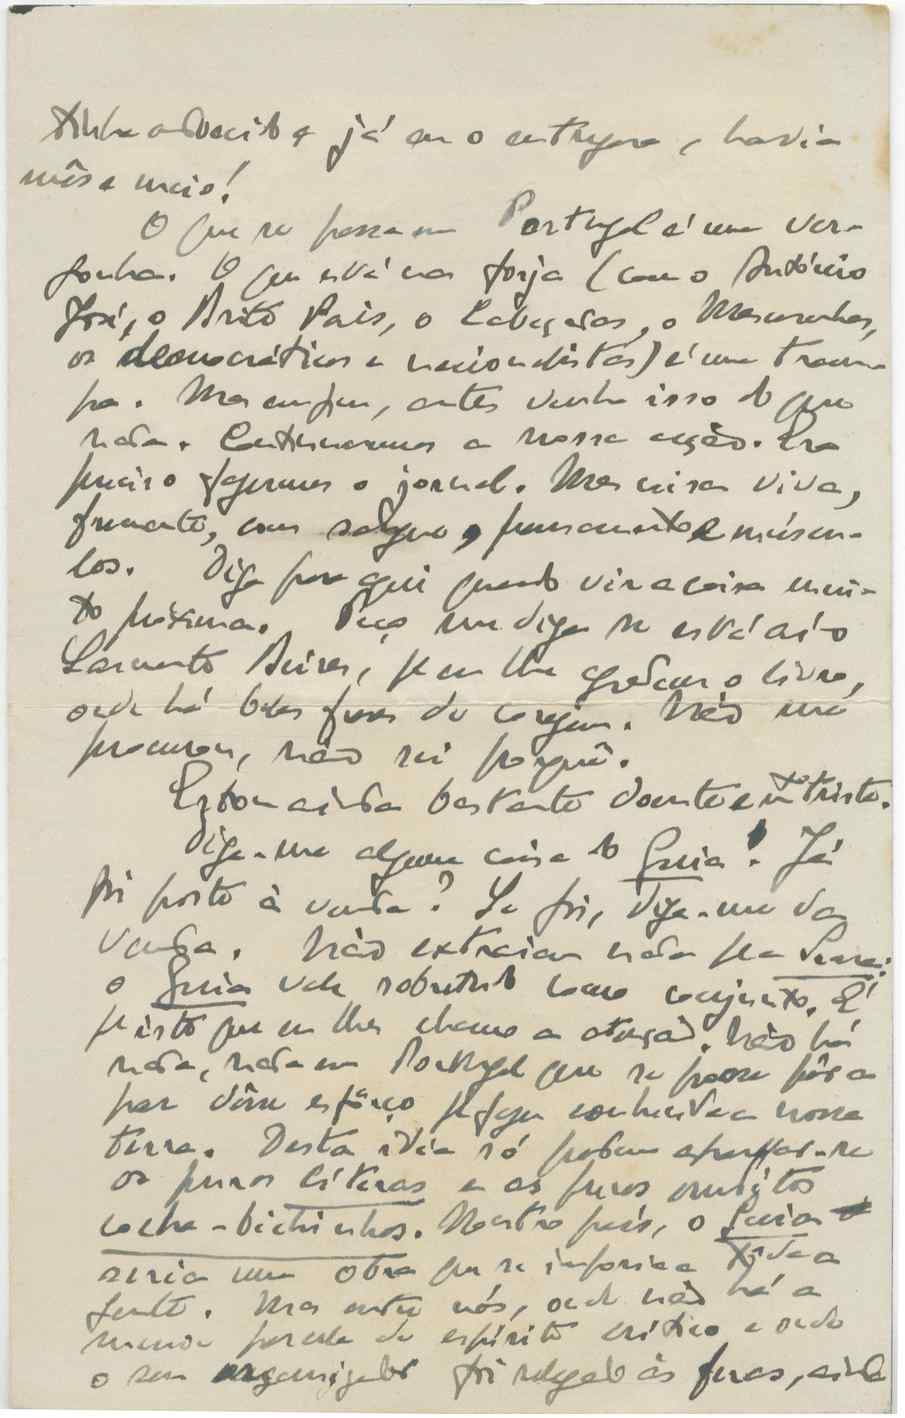 tinha adoecido e já eu o entregara, havia
mês e meio!
O que se passa em Portugal é uma ver-
gonha. O que está na forja (com o António
José, o Brito Pais, o Cabeçadas, o Mascarenhas,
os democráticos e nacionalistas) é uma tram-
pa. Mas enfim, antes venha isso do que
nada. Continuaremos a nossa acção. Era
preciso fazermos o jornal. Mas coisa viva,
fremente, com sangue, pensamento e múscu-
los. Diga para aqui quando vir a coisa mui-
to próxima. Peço me diga se está aí o
Sarmento Beires, p.a eu lhe agradecer o livro,
onde há belas frases de coragem. Não me
procurou, não sei porquê.
Estou ainda bastante doente e m.to triste.
Diga-me alguma coisa do Guia! Já
foi posto à venda? Se foi, diga-me da
venda. Não extraiam nada p.a a Seara:
o Guia vale sobretudo como conjunto. É
p.a isto que eu lhes chamo a atenção. Não há
nada, nada em Portugal que se possa pôr a
par dêsse esfôrço p.a fazer conhecida a nossa
terra. Desta idéia só podem apossar-se
os puros literas e os puros eruditos
cacha-bichinhos. Noutro país, o Guia
seria uma obra que se imporia a tôda a
gente. Mas entre nós, onde não há a
menor parcela de espírito crítico e onde
o seu organizador foi relegado às feras, ainda